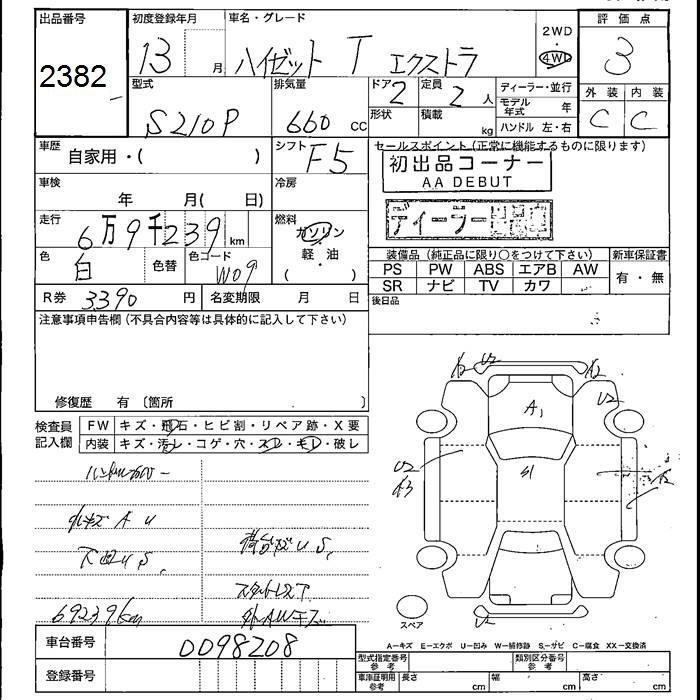 出品番号
2382
初度登録年月
13 月
車名・グレード
ハイゼット T エクストラ
2WD
4WD
評価点
3
型式
S210P
排気量
660 cc
ドア
2
定員
2 人
形状
積載
kg
ディーラー・並行
モデル年式 年
ハンドル 左・右
外装
C
内装
C
車歴
自家用・( )
シフト
F5
車検
年 月( 日)
冷房
走行
6万9千239 km
燃料
ガソリン
・
軽・油
( )
色
白
色替
色コード
W09
R券 3390 円
名変期限 月 日
セールスポイント(正常に機能するものに限ります)
初出品コーナー
AA DEBUT
ディーラー
装備品(純正品に限り○をつけて下さい)
新車保証書
PS PW ABS エアB AW
SR ナビ TV カワ
有・無
後日品
注意事項申告欄(不具合内容等は具体的に記入して下さい)
修復歴 有 〔箇所 〕
検査員記入欄
FW キズ・飛石・ヒビ割・リペア跡・X要
内装 キズ・汚レ・コゲ・穴・スレ・キレ・破レ
小キズ A U
下回U S,
荷台キズ U S,
スタットレスT
69239km
外AWキズ
A2
U2
A2
U2
A1
U2
A3
S1
A2
U2
スペア
A-キズ E-エクボ U-凹み W-補修跡 S-サビ C-腐食 XX-交換済
車台番号
0098208
登録番号
型式指定番号
参考
類別区分番号
参考
車庫証明用
参考
長さ cm
幅 cm
高さ cm